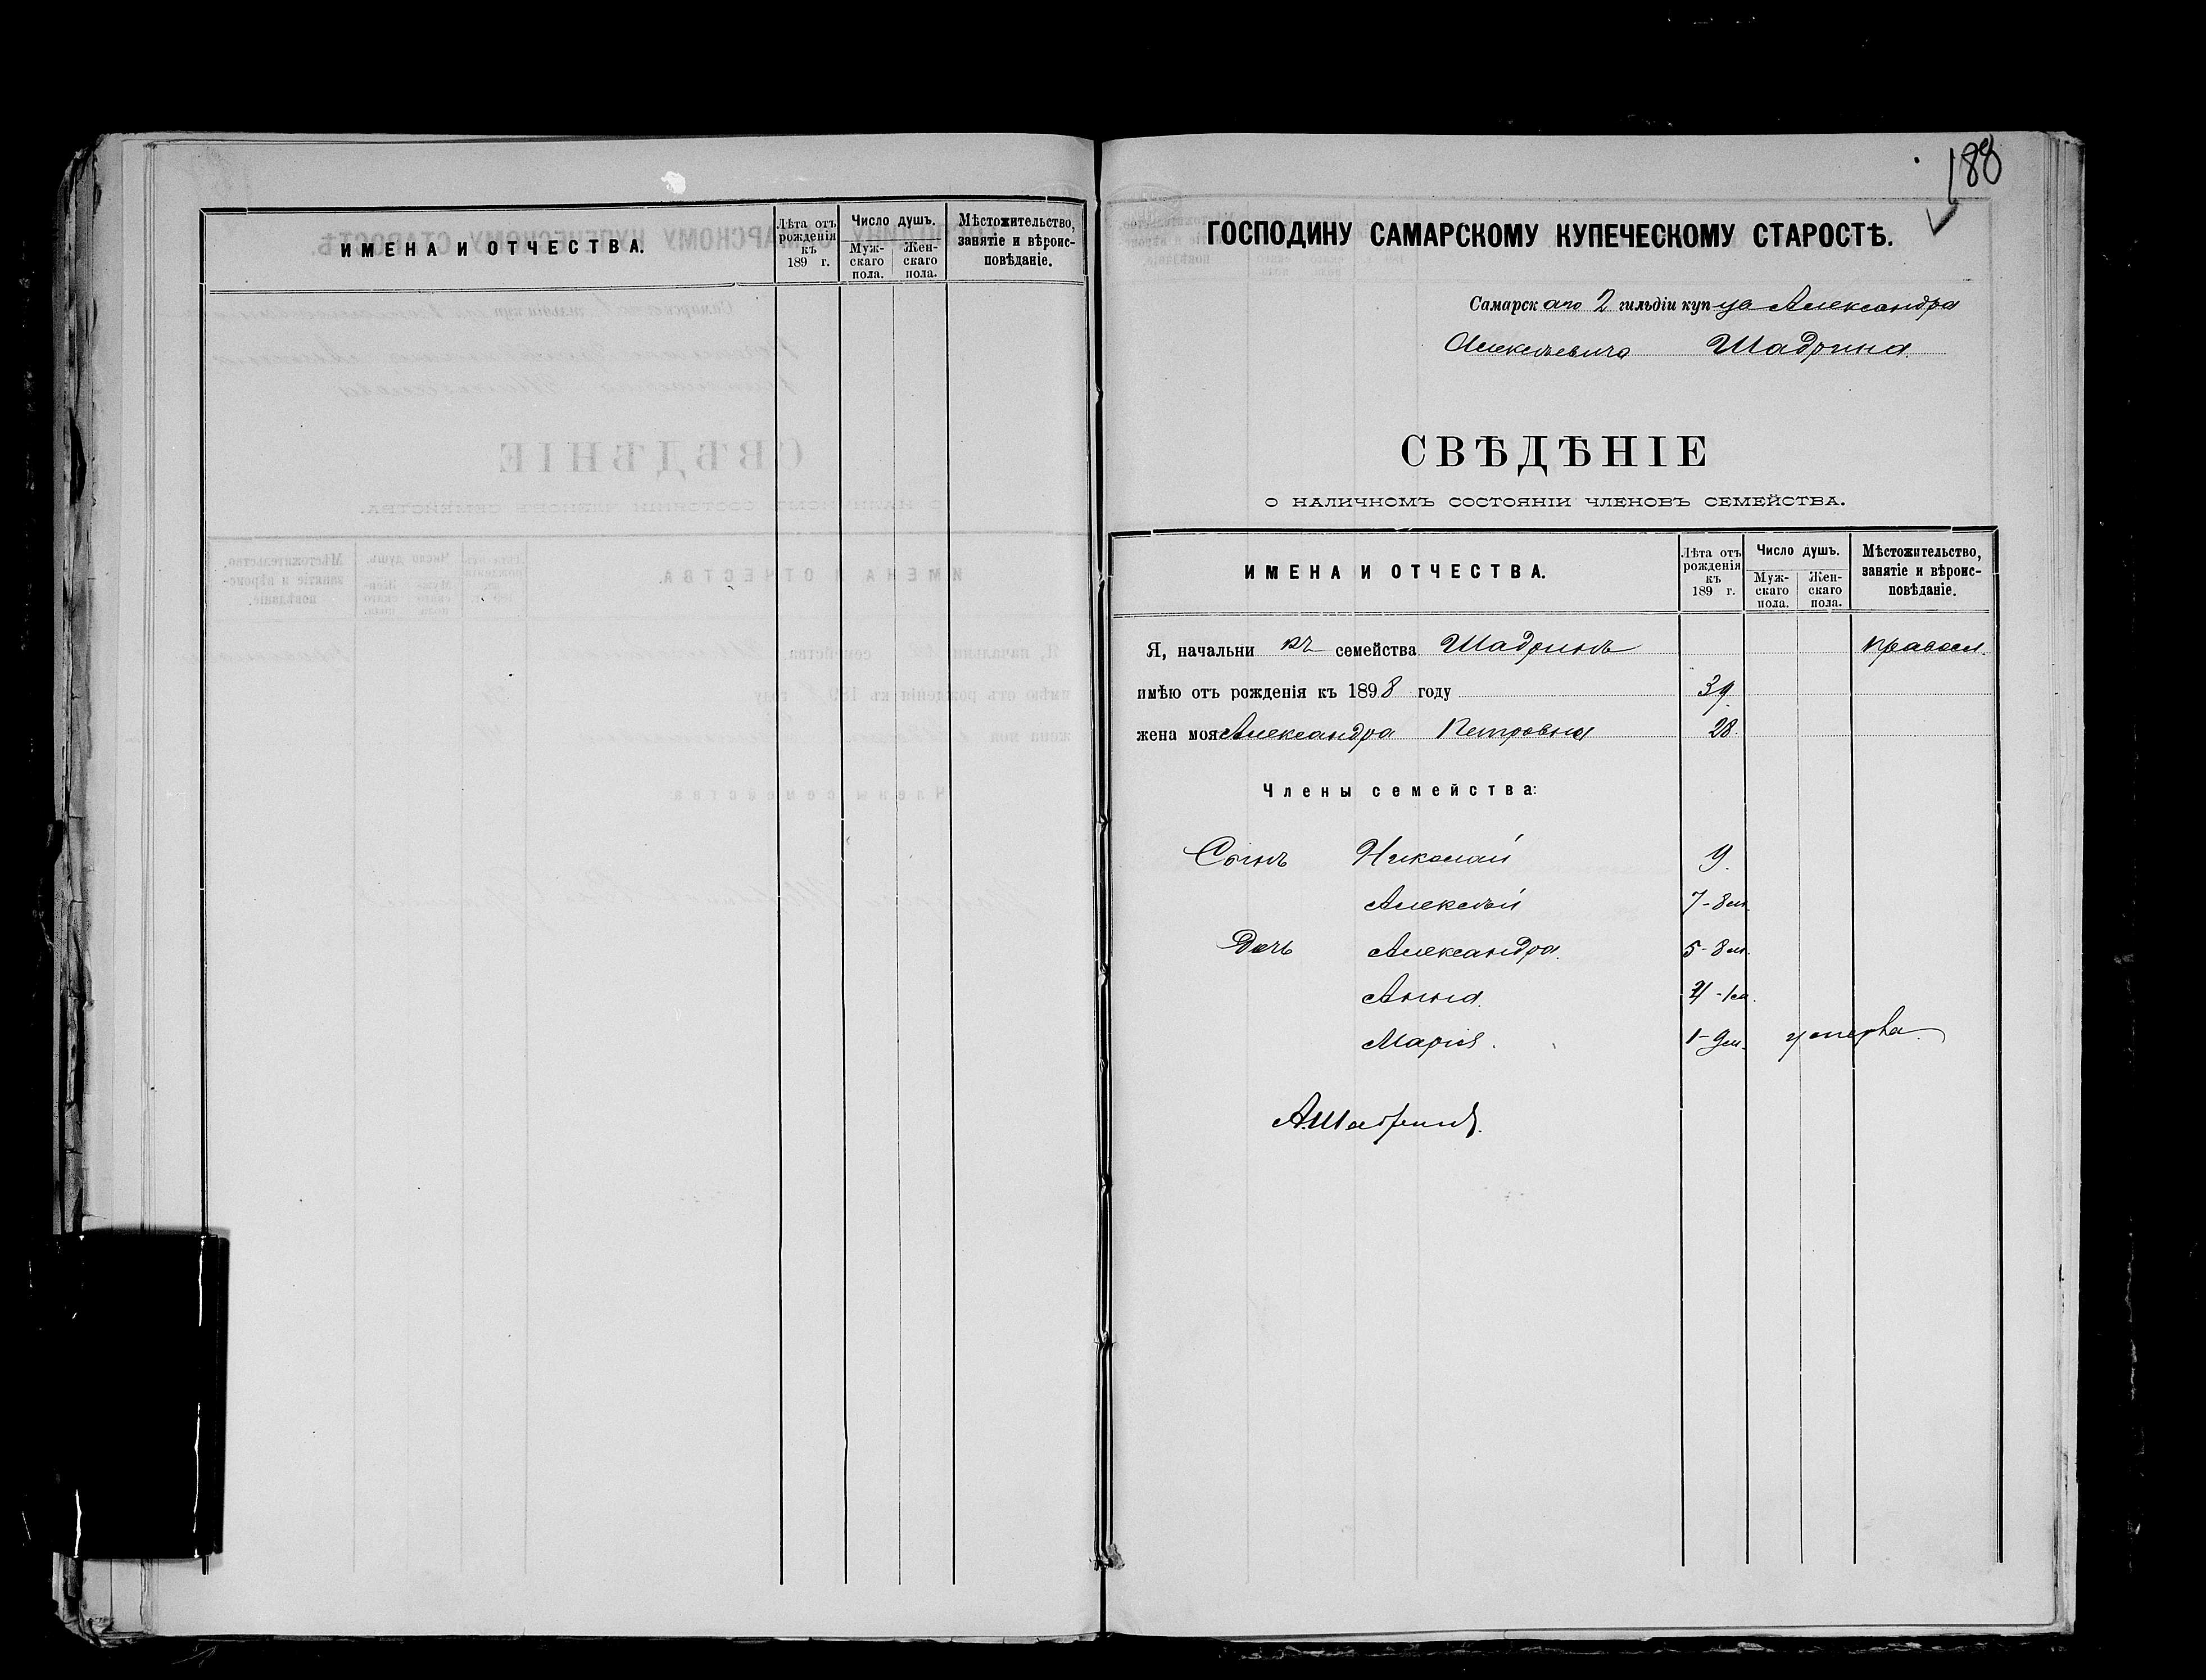 ИМЕНА И ОТЧЕСТВА.
Лѣта отъ рожденія къ 189 г.
Число душъ.
Муж-скаго пола.
Жен-скаго пола.
Мѣстожительство, занятіе и вѣроис-повѣданіе.
188
ГОСПОДИНУ САМАРСКОМУ КУПЕЧЕСКОМУ СТАРОСТѢ.
Самарскаго 2 гильдіи купца Александра
Алексѣевича Шадрина.
СВѢДѢНІЕ
О НАЛИЧНОМЪ СОСТОЯНІИ ЧЛЕНОВЪ СЕМЕЙСТВА.
ИМЕНА И ОТЧЕСТВА.
Лѣта отъ рожденія къ 189 г.
Число душъ.
Муж-скаго пола.
Жен-скаго пола.
Мѣстожительство, занятіе и вѣроис-повѣданіе.
Я, начальникъ семейства Шадринъ правосл.
имѣю отъ рожденія къ 1898 году 39.
жена моя Александра Петровна 28.
Члены семейства:
Сынъ Николай 9.
Алексѣй 7-8м.
Дочь Александра. 5-8м.
Анна. 4-1м.
Марія. 1-9м. умерла.
А. Шадринъ.